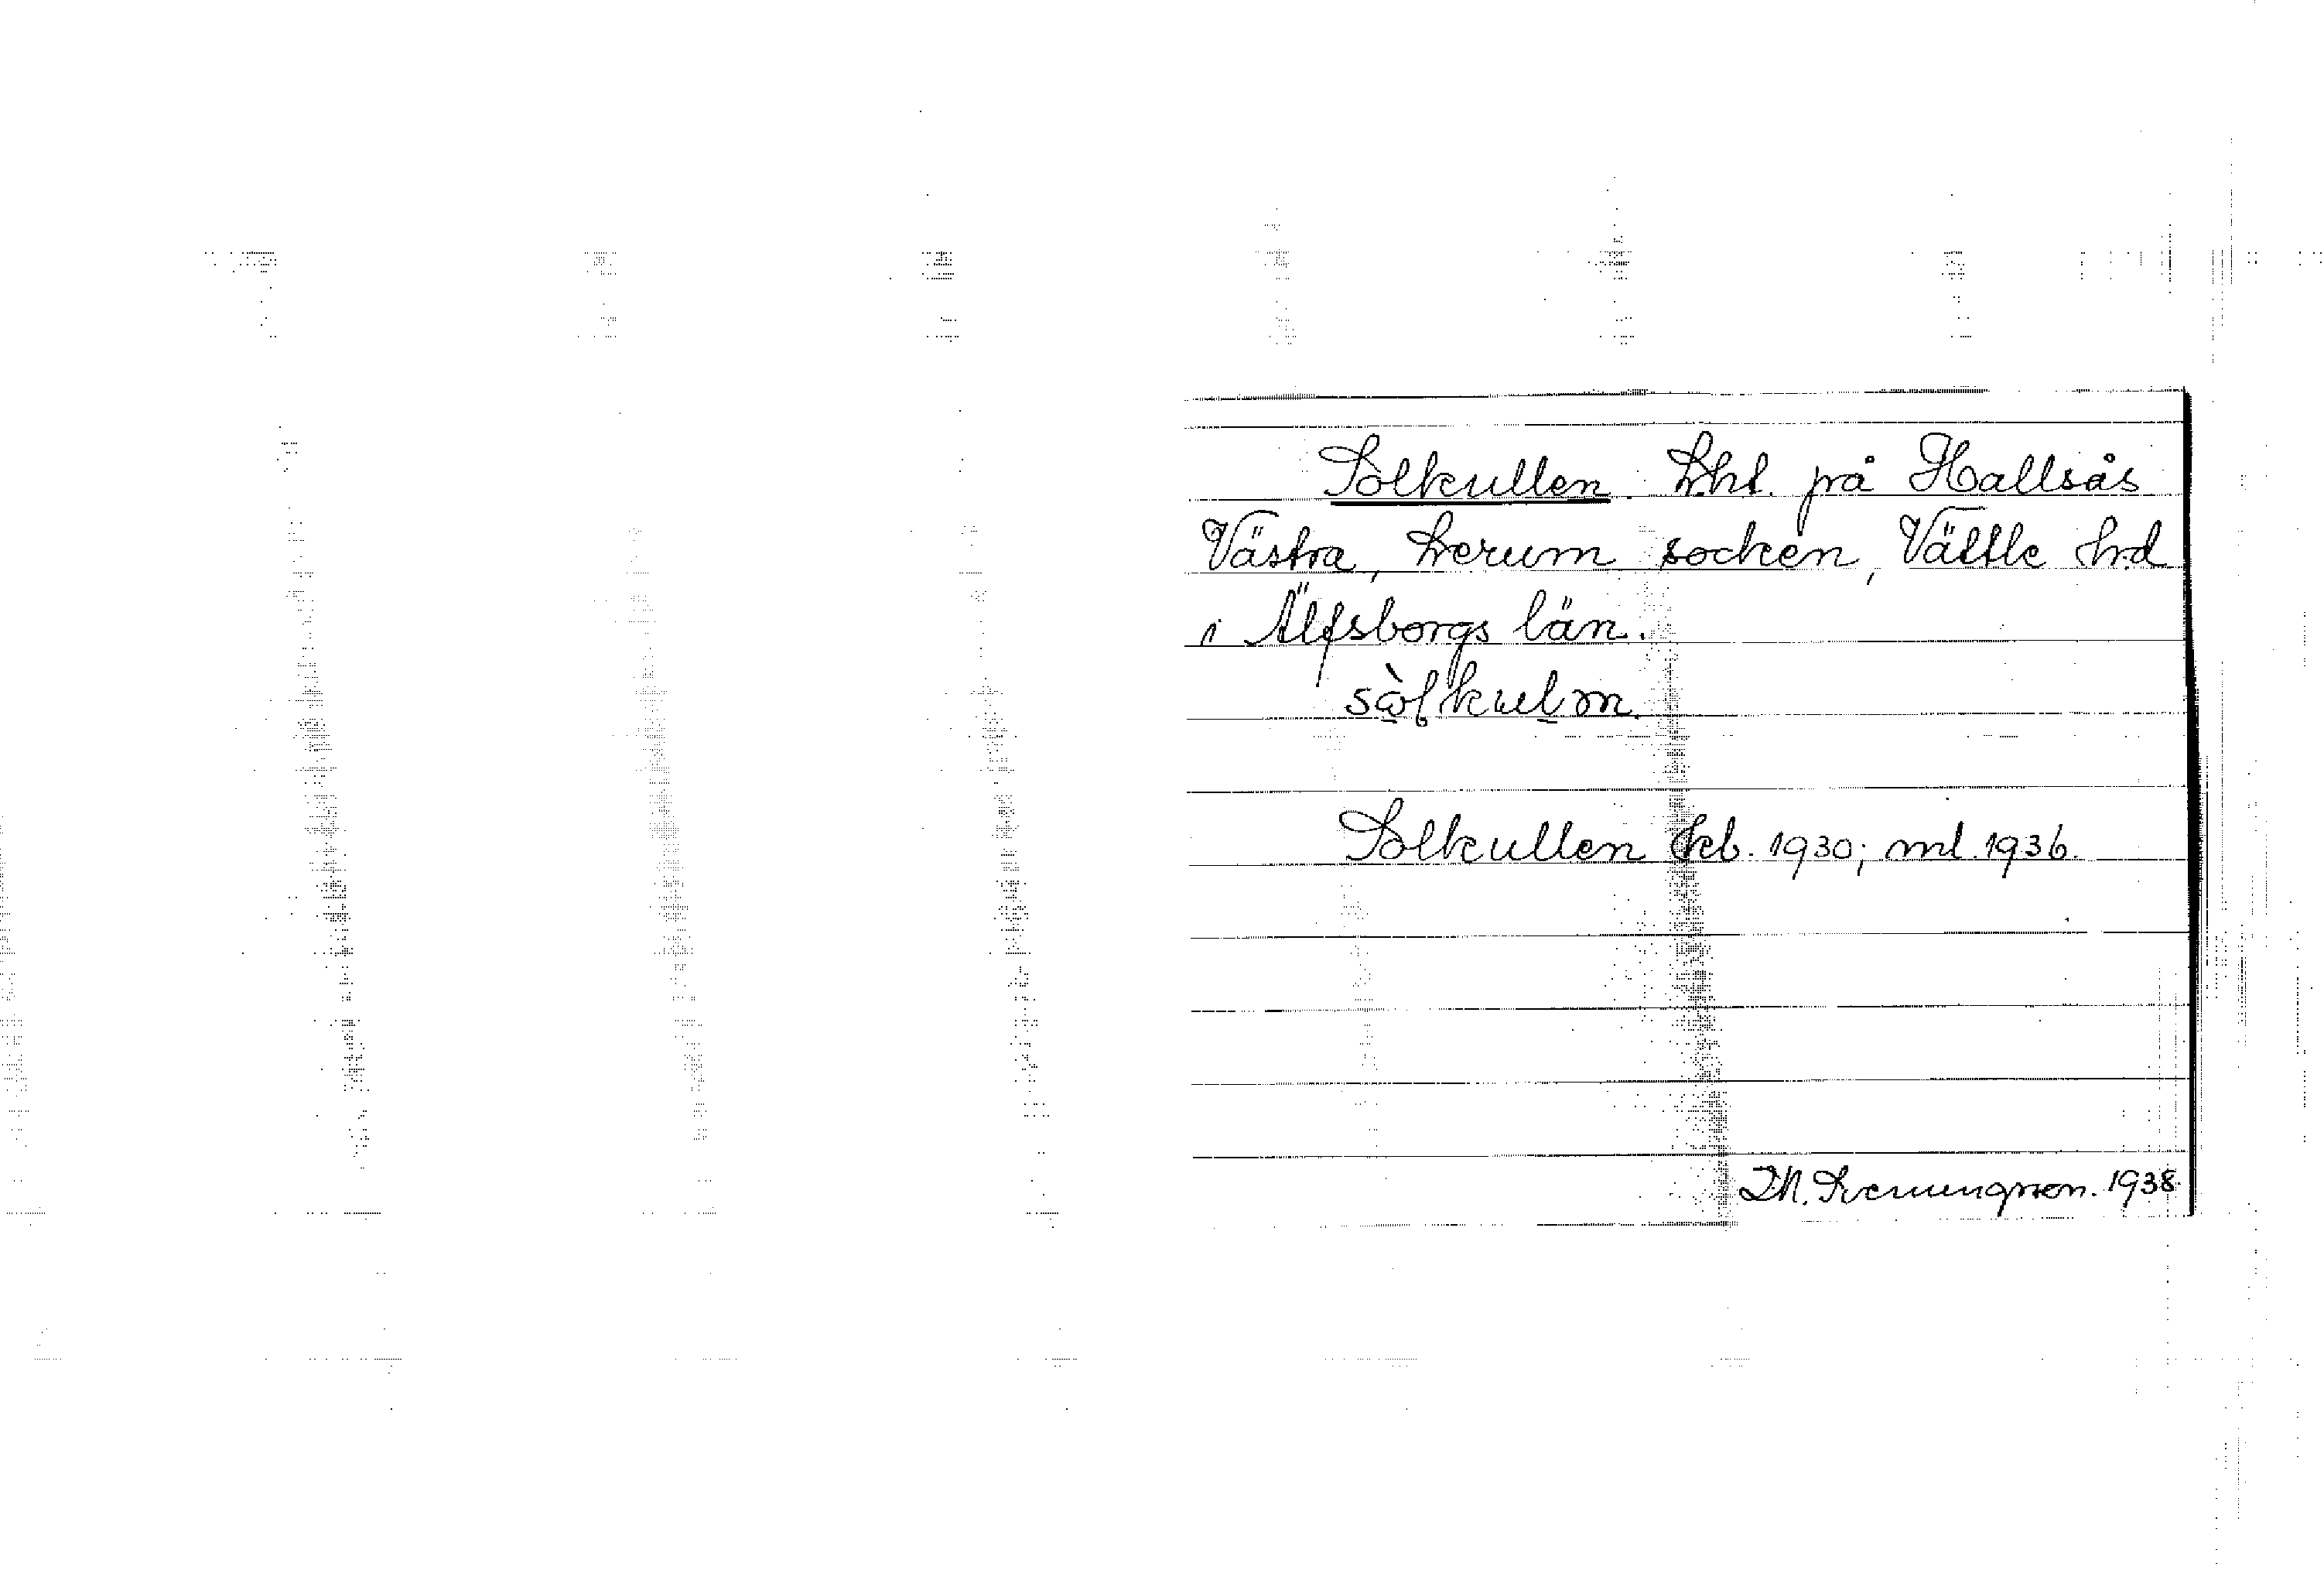 Solkullen. Lht. på Hallsås
Västra, Lerum socken, Vättle hd
i Älfsborgs län.
Solkullen Jeb. 1930; ml. 1936.
1938